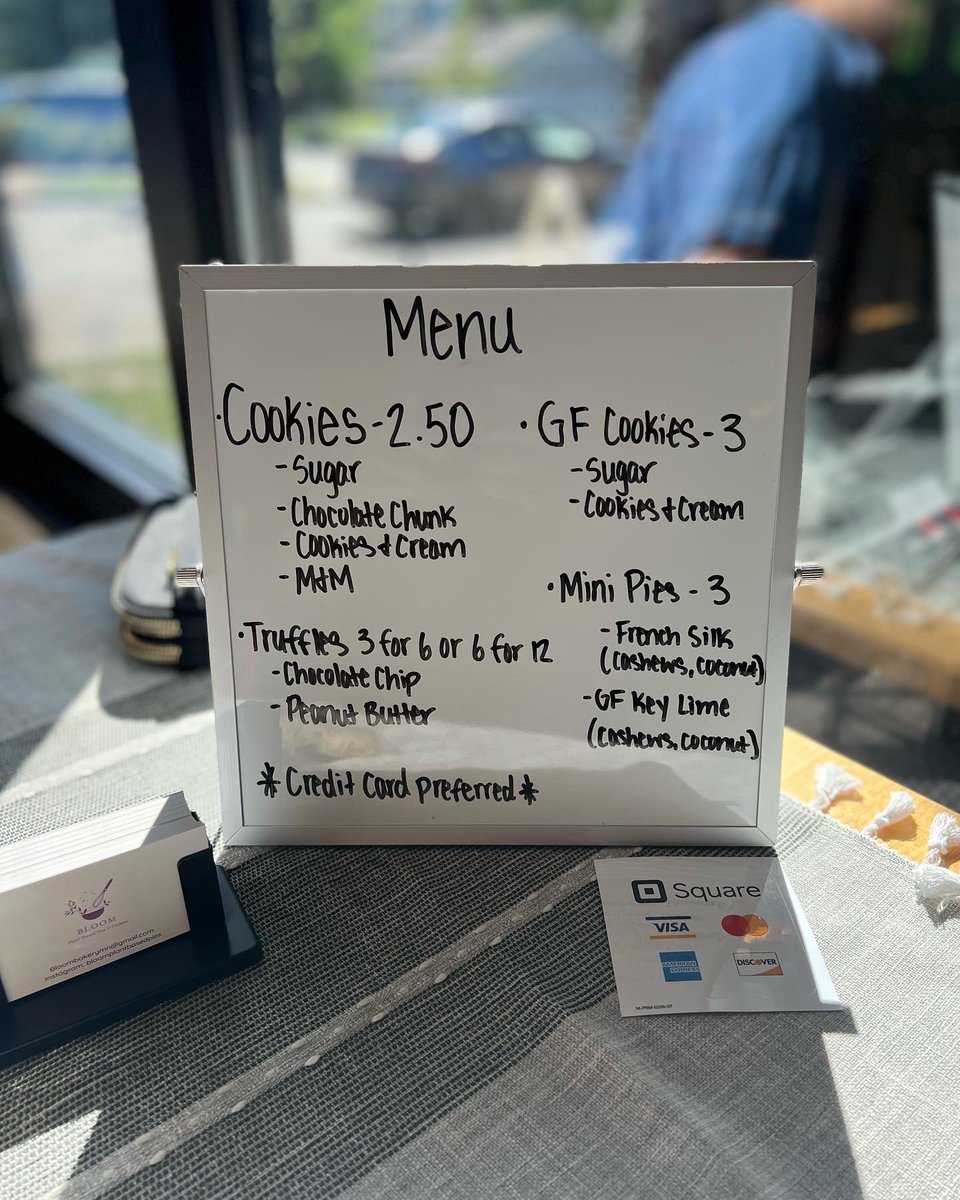 Menu
·Cookies-2.50
-Sugar
-Chocolate Chunk
-Cookies & Cream
-M&M
·Truffles 3 for 6 or 6 for 12
-Chocolate Chip
-Peanut Butter
·GF Cookies-3
-Sugar
-Cookies & Cream
·Mini Pies - 3
-French Silk
(cashews, coconut)
-GF Key Lime
(cashews, coconut)
*Credit Card preferred*
BLOOM
Bloombakerymn@gmail.com
Instagram: bloomplantbasedpies
Square
VISA
AMERICAN EXPRESS
DISCOVER
M-PRM-0206-07